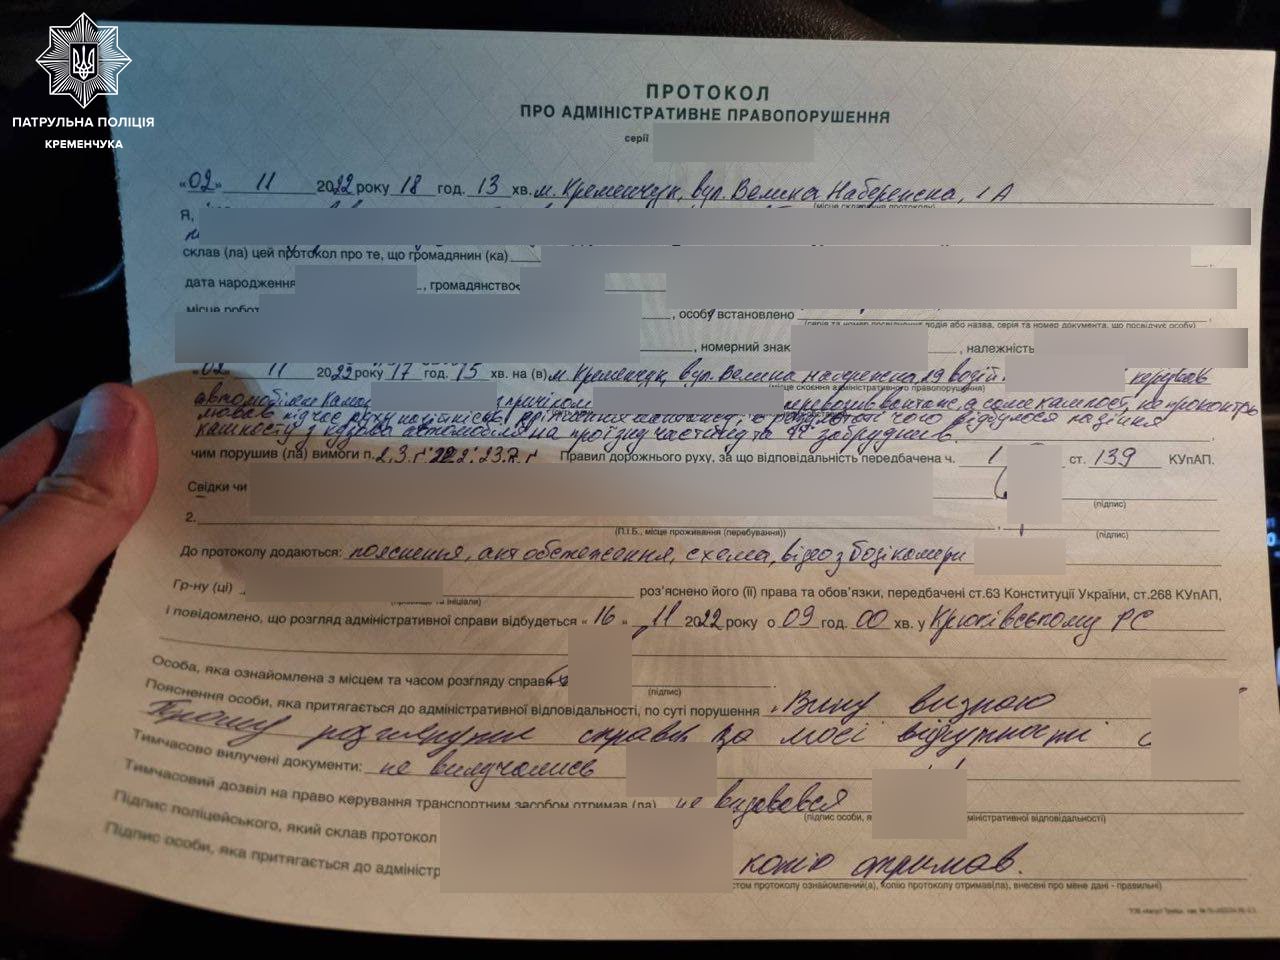 ПАТРУЛЬНА ПОЛІЦІЯ
КРЕМЕНЧУКА
ПРОТОКОЛ
ПРО АДМІНІСТРАТИВНЕ ПРАВОПОРУШЕННЯ
серії
«02» 11 2022 року 18 год. 13 хв. м. Кременчук, вул. Велика Набережна, 1А
(місце складання протоколу)
Я,
склав (ла) цей протокол про те, що громадянин (ка)
дата народження , громадянство
місце роботи , особу встановлено
(серія та номер посвідчення водія або назва, серія та номер документа, що посвідчує особу)
, номерний знак , належність
«02» 11 2022 року 17 год. 15 хв. на (в) м. Кременчук, вул. Велика набережна 19 водій керував
(місце скоєння адміністративного правопорушення)
автомобілем з причіпом перевозив вантаж, а саме
під час руху надійність, в результаті чого відбулося падіння
з кузова автомобіля на проїзну частину та її забруднив.
чим порушив (ла) вимоги п. 2.3. Правил дорожнього руху, за що відповідальність передбачена ч. 1 ст. 139 КУпАП.
Свідки чи
(підпис)
2.
(П.І.Б., місце проживання (перебування)) (підпис)
До протоколу додаються: пояснення, акт обстеження, схема, відео з бодікамери
Гр-ну (ці) роз'яснено його (її) права та обов'язки, передбачені ст.63 Конституції України, ст.268 КУпАП,
і повідомлено, що розгляд адміністративної справи відбудеться «16» 11 2022 року о 09 год. 00 хв. у Крюківському РС
Особа, яка ознайомлена з місцем та часом розгляду справи
(підпис)
Пояснення особи, яка притягається до адміністративної відповідальності, по суті порушення Вину визнаю
Прошу розглянути справу за моєї відсутності
Тимчасово вилучені документи: не вилучались
Тимчасовий дозвіл на право керування транспортним засобом отримав (ла) не видавався
(підпис особи, міністративної відповідальності)
Підпис поліцейського, який склав протокол
Підпис особи, яка притягається до адміністр копію отримав.
стом протоколу ознайомлений(а), копію протоколу отримав(ла), внесені про мене дані - правильні)